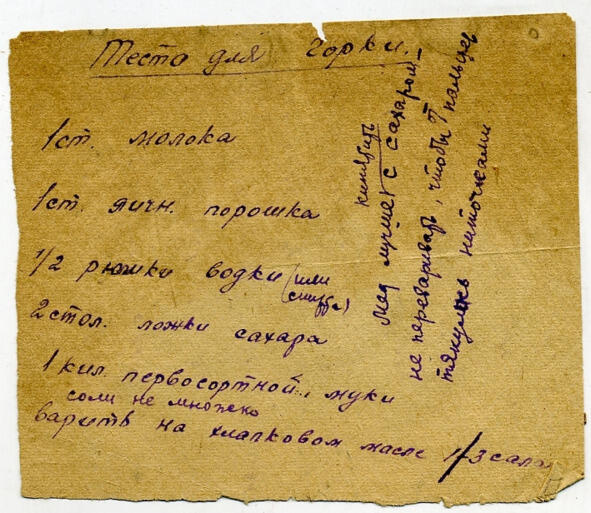 Тесто для Горки.
1 ст. молока
1 ст. яичн. порошка
1/2 рюмки водки (или спирта)
2 стол. ложки сахара
1 кил. первосортной, муки
соли не множко
варить на хлапковом масле 1/3 сала
кипятить
Мед лучше с сахаром-
не переваривать, чтобы от пальцев
тянулись ниточками